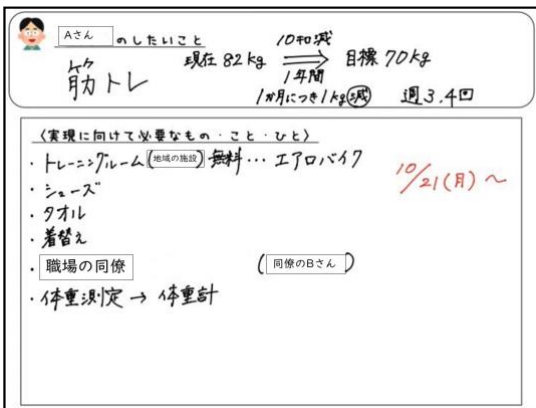 Aさん のしたいこと
筋トレ
現在 82kg
10キロ減
1年間
目標 70kg
1か月につき1kg減 週3.4回
〈実現に向けて必要なもの・こと・ひと〉
・トレーニングルーム(地域の施設) 無料… エアロバイク
10/21(月)~
・シューズ
・タオル
・着替え
・職場の同僚 (同僚のBさん)
・体重測定 → 体重計